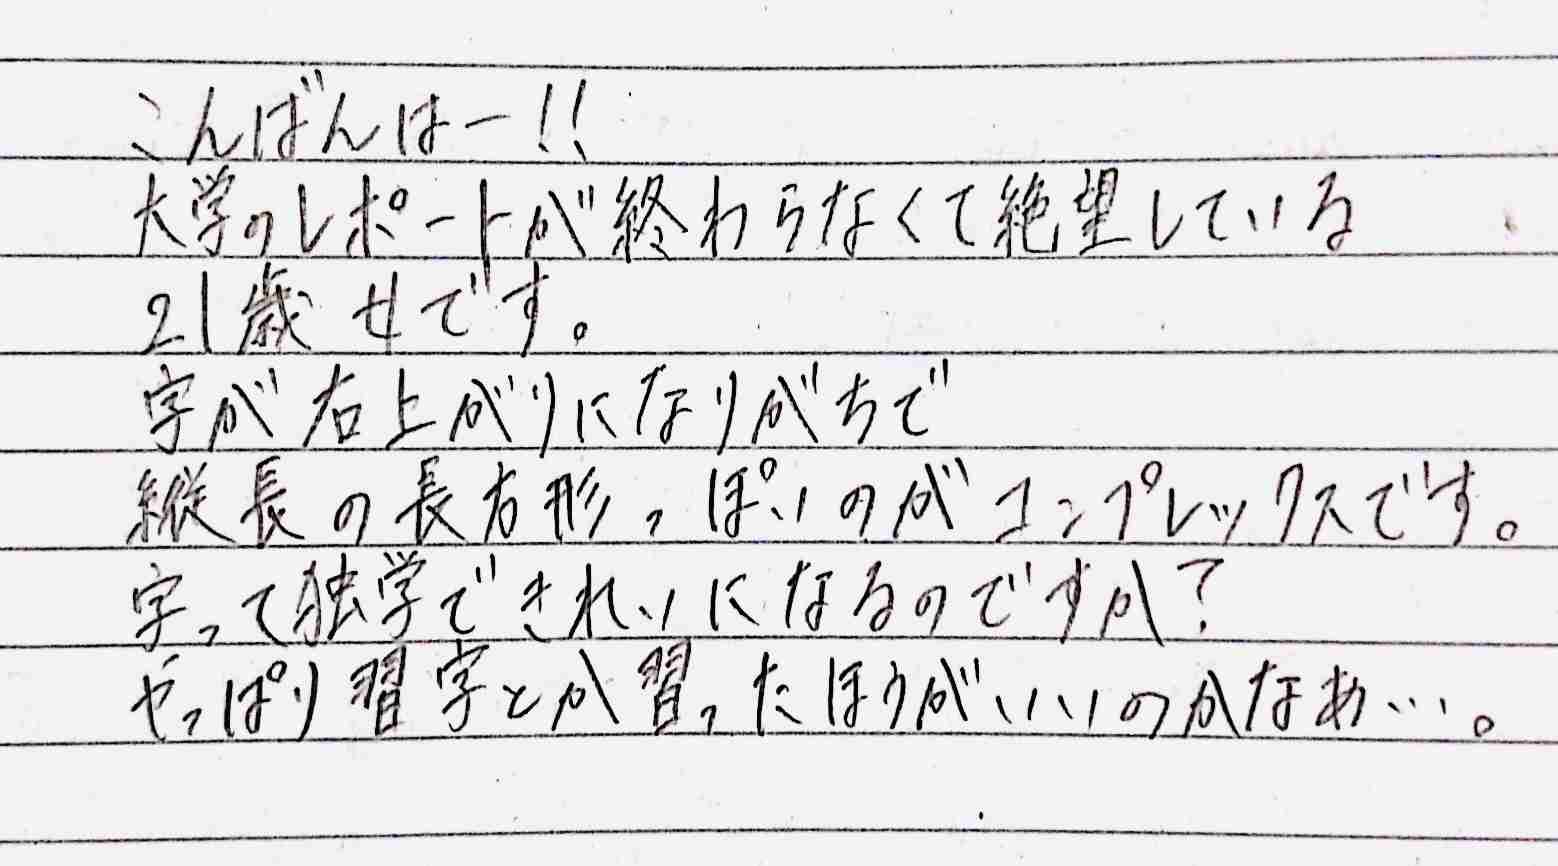 こんばんはー!!
大学のレポートが終わらなくて絶望している
21歳女です。
字が右上がりになりがちで
縦長の長方形っぽいのがコンプレックスです。
字って独学できれいになるのですか?
やっぱり習字とか習ったほうがいいのかなあ…。